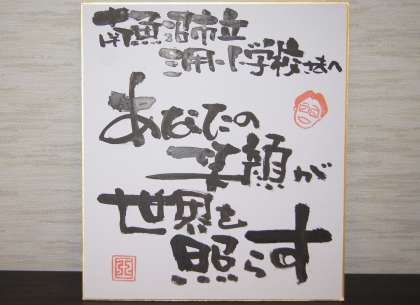 南魚沼市立
三用小学校さまへ
あなたの
笑顔が
世界を
照らす